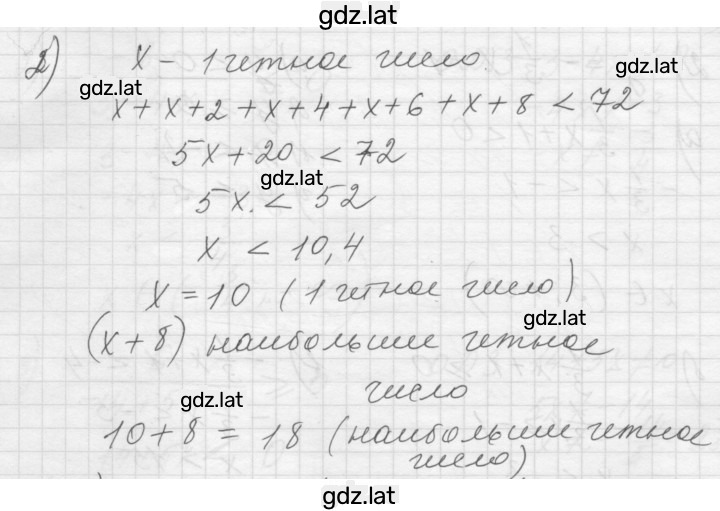 gdz.lat
2) x - 1 четное число.
gdz.lat
gdz.lat
x + x + 2 + x + 4 + x + 6 + x + 8 < 72
5x + 20 < 72
gdz.lat
5x < 52
x < 10,4
x = 10 (1 четное число)
gdz.lat
(x + 8) наибольшие четное
число
gdz.lat
10 + 8 = 18 (наибольшие четное
число)
gdz.lat